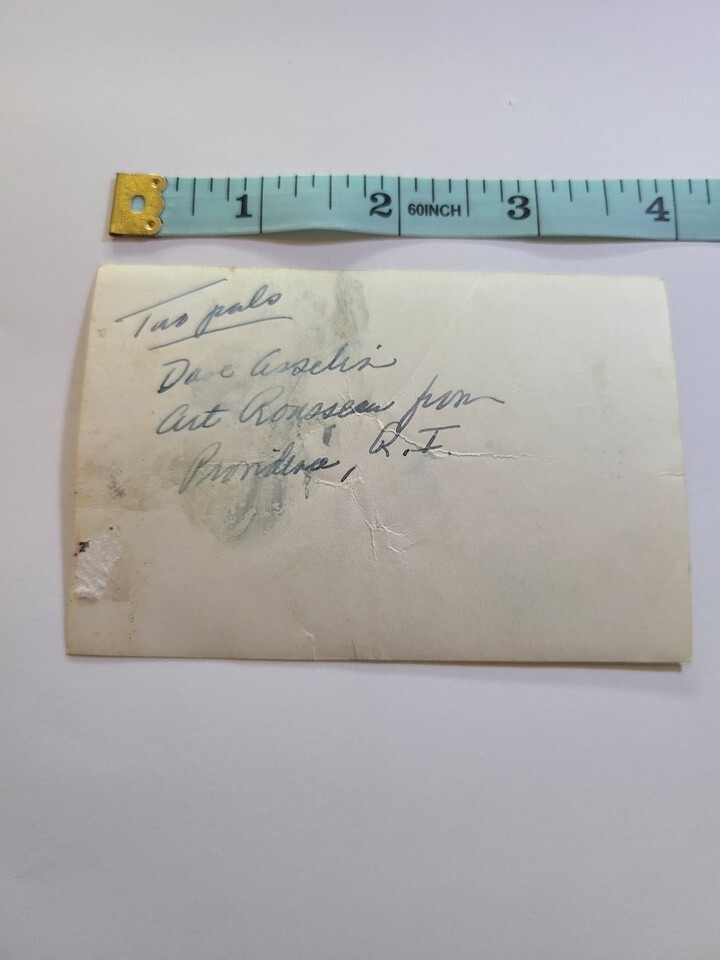 1 2 60INCH 3 4
Two pals
Dave Asselin
Art Rousseau from
Providence, R.I.